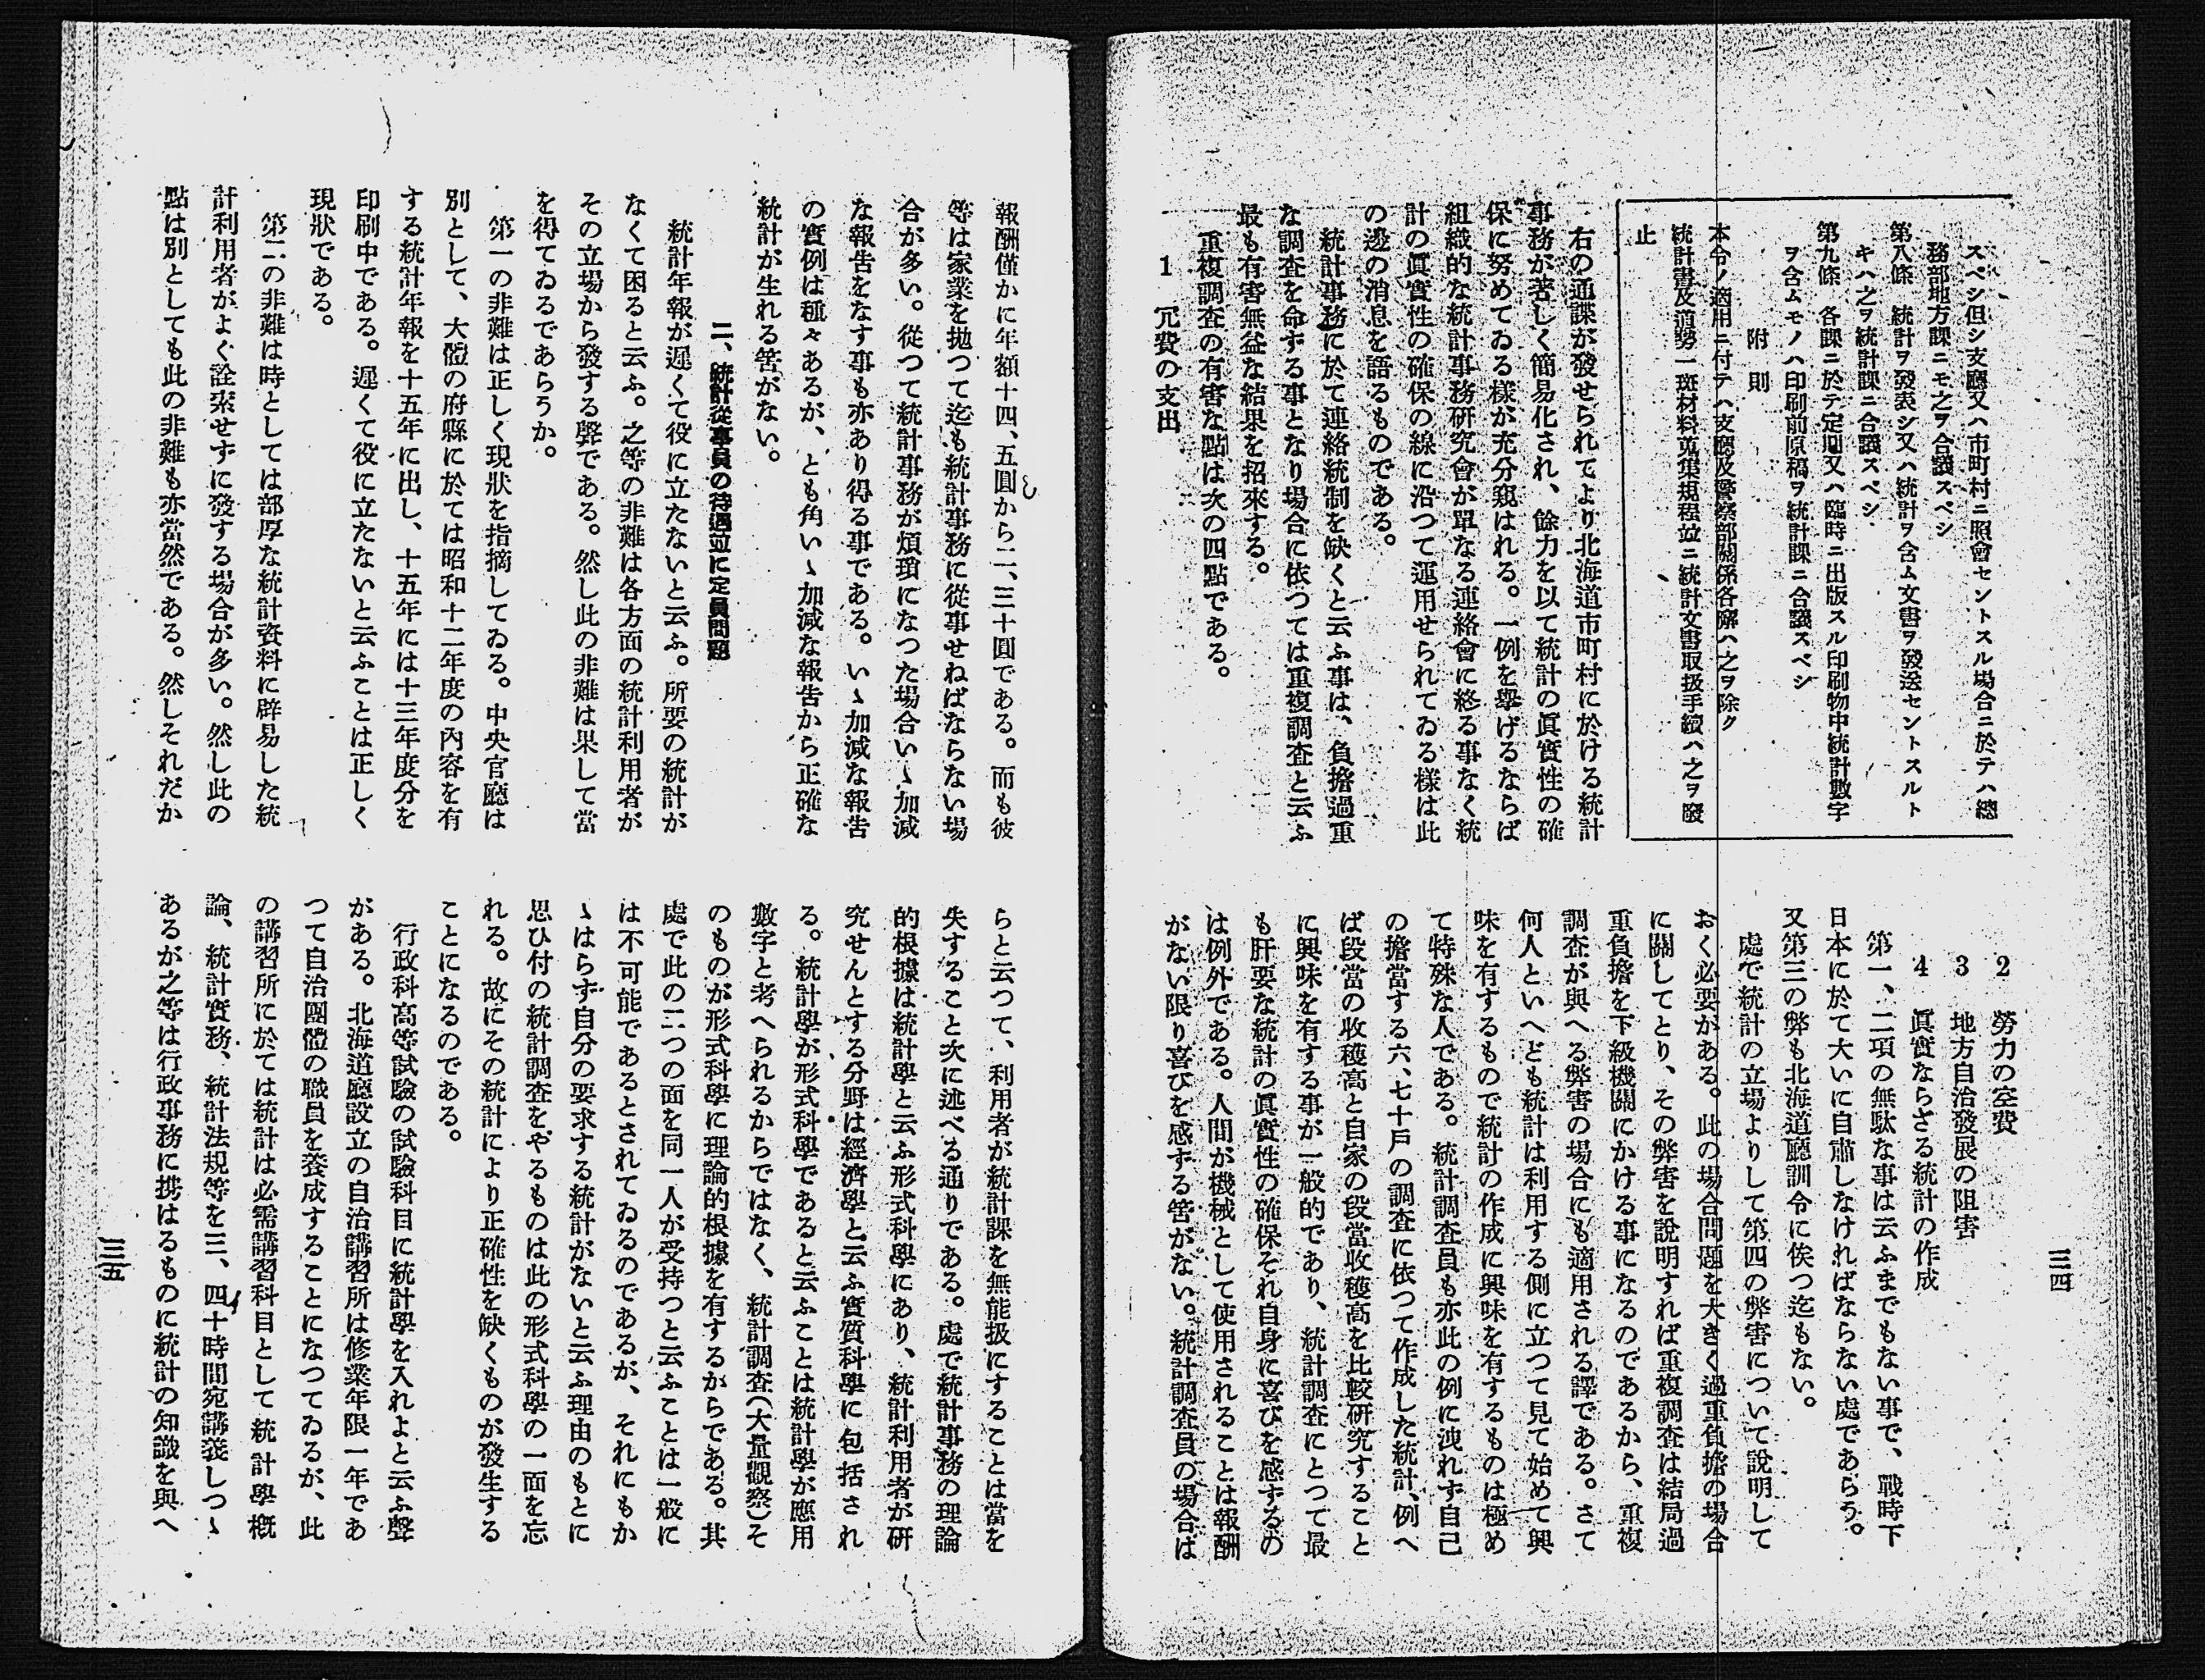 スベシ但シ支廳又ハ市町村ニ照會セントスル場合ニ於テハ總
務部地方課ニモ之ヲ合議スベシ
第八條　統計ヲ發表シ又ハ統計ヲ含ム文書ヲ發送セントスルト
キハ之ヲ統計課ニ合議スベシ
第九條　各課ニ於テ定期又ハ臨時ニ出版スル印刷物中統計數字
ヲ含ムモノハ印刷前原稿ヲ統計課ニ合議スベシ
附　則
本令ノ適用ニ付テハ支廳及警察部關係各廨ハ之ヲ除ク
統計書及道勢一斑材料蒐集規程並ニ統計文書取扱手續ハ之ヲ廢
止
右の通諜が發せられてより北海道市町村に於ける統計
事務が著しく簡易化され、餘力を以て統計の眞實性の確
保に努めてゐる樣が充分窺はれる。一例を擧げるならば
組織的な統計事務研究會が單なる連絡會に終る事なく統
計の眞實性の確保の線に沿つて運用せられてゐる樣は此
の邊の消息を語るものである。
統計事務に於て連絡統制を缺くと云ふ事は、負擔過重
な調査を命ずる事となり場合に依つては重複調査と云ふ
最も有害無益な結果を招來する。
重複調査の有害な點は次の四點である。
1　冗費の支出
2　勞力の空費
3　地方自治發展の阻害
4　眞實ならざる統計の作成
第一、二項の無駄な事は云ふまでもない事で、戰時下
日本に於て大いに自肅しなければならない處であらう。
又第三の弊も北海道廳訓令に俟つ迄もない。
處で統計の立場よりして第四の弊害について說明して
おく必要がある。此の場合問題を大きく過重負擔の場合
に關してとり、その弊害を說明すれば重複調査は結局過
重負擔を下級機關にかける事になるのであるから、重複
調査が與へる弊害の場合にも適用される譯である。さて
何人といへども統計は利用する側に立つて見て始めて興
味を有するもので統計の作成に興味を有するものは極め
て特殊な人である。統計調査員も亦此の例に洩れず自己
の擔當する六、七十戸の調査に依つて作成した統計、例へ
ば段當の收穫高と自家の段當收穫高を比較研究すること
に興味を有する事が一般的であり、統計調査にとつて最
も肝要な統計の眞實性の確保それ自身に喜びを感ずるの
は例外である。人間が機械として使用されることは報酬
がない限り喜びを感ずる筈がない。統計調査員の場合は
三四
報酬僅かに年額十四、五圓から二、三十圓である。而も彼
等は家業を抛つて迄も統計事務に從事せねばならない場
合が多い。從つて統計事務が煩瑣になつた場合いゝ加減
な報告をなす事も亦あり得る事である。いゝ加減な報告
の實例は種々あるが、とも角いゝ加減な報告から正確な
統計が生れる筈がない。
二、統計從事員の待遇竝に定員問題
統計年報が遲くて役に立たないと云ふ。所要の統計が
なくて困ると云ふ。之等の非難は各方面の統計利用者が
その立場から發する聲である。然し此の非難は果して當
を得てゐるであらうか。
第一の非難は正しく現狀を指摘してゐる。中央官廳は
別として、大體の府縣に於ては昭和十二年度の內容を有
する統計年報を十五年に出し、十五年には十三年度分を
印刷中である。遲くて役に立たないと云ふことは正しく
現狀である。
第二の非難は時としては部厚な統計資料に辟易した統
計利用者がよく詮索せずに發する場合が多い。然し此の
點は別としても此の非難も亦當然である。然しそれだか
らと云つて、利用者が統計課を無能扱にすることは當を
失すること次に述べる通りである。處で統計事務の理論
的根據は統計學と云ふ形式科學にあり、統計利用者が硏
究せんとする分野は經濟學と云ふ實質科學に包括され
る。統計學が形式科學であると云ふことは統計學が應用
數字と考へられるからではなく、統計調査(大量觀察)そ
のものが形式科學に理論的根據を有するからである。其
處で此の二つの面を同一人が受持つと云ふことは一般に
は不可能であるとされてゐるのであるが、それにもか
ゝはらず自分の要求する統計がないと云ふ理由のもとに
思ひ付の統計調査をやるものは此の形式科學の一面を忘
れる。故にその統計により正確性を缺くものが發生する
ことになるのである。
行政科高等試驗の試驗科目に統計學を入れよと云ふ聲
がある。北海道廳設立の自治講習所は修業年限一年であ
つて自治團體の職員を養成することになつてゐるが、此
の講習所に於ては統計は必需講習科目として統計學槪
論、統計實務、統計法規等を三、四十時間宛講義しつゝ
あるが之等は行政事務に携はるものに統計の知識を與へ
三五